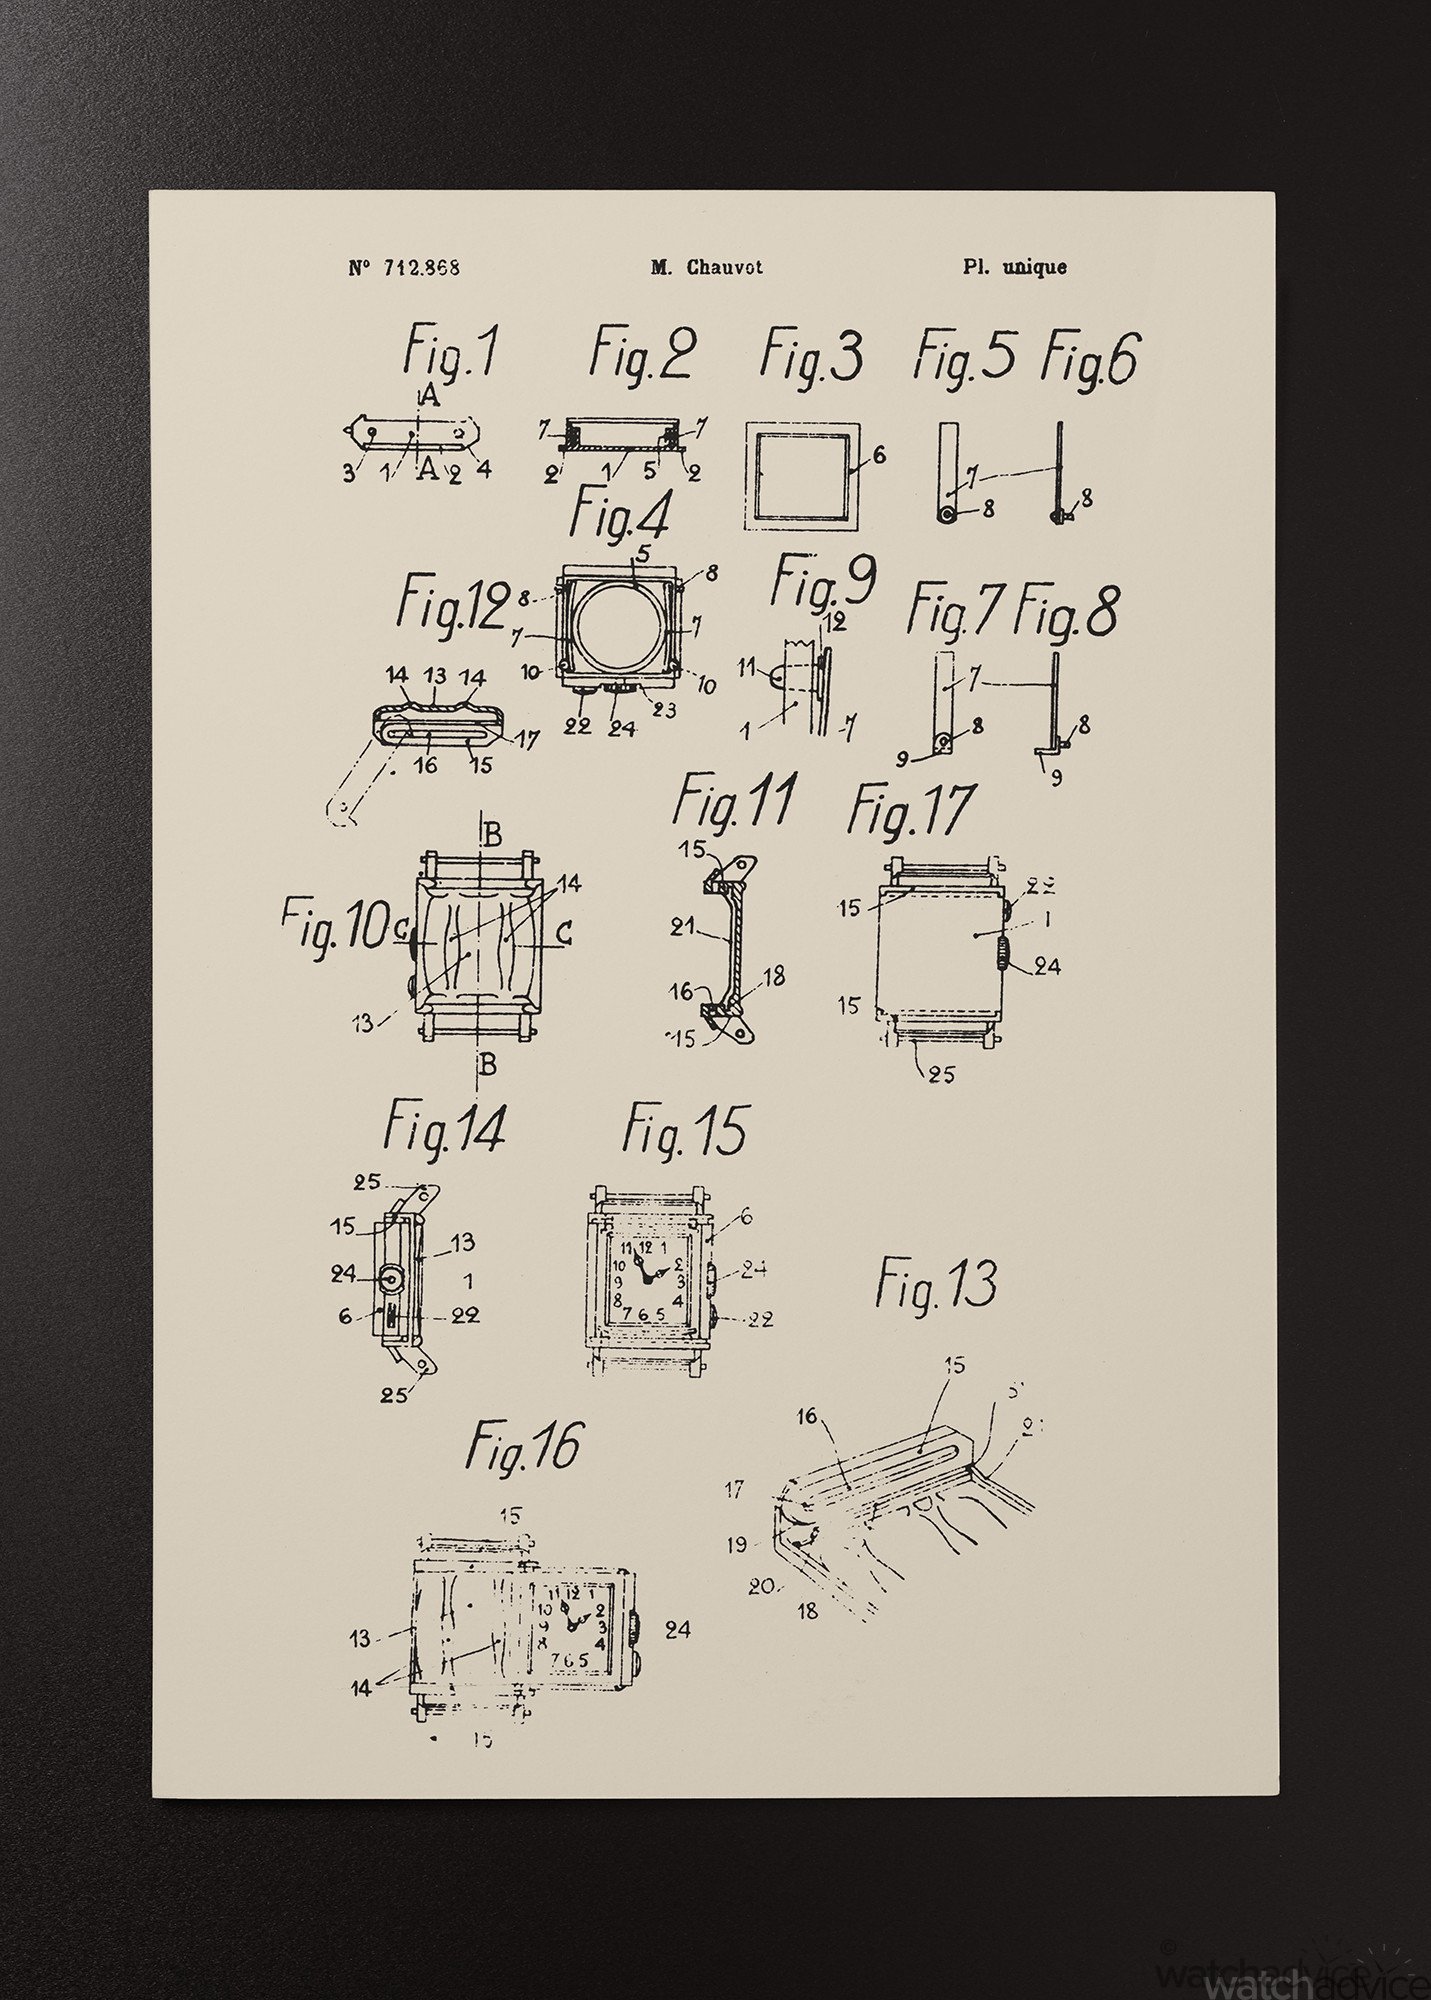 Nº 712.868 M. Chauvot Pl. unique
Fig.1 Fig.2 Fig.3 Fig.5 Fig.6
A
7 7
6
3 1 A 2 4
2 1 5 2
7
8 8
Fig.4
5
8 8
7 7
10 10
22 24 23
Fig.12
14 13 14
17
16 15
Fig.9
12
11
1 7
Fig.7 Fig.8
7
8 8
9 9
Fig.10
B
14
C C
13
B
Fig.11
15
21
16 18
15
Fig.17
22
15 1
24
15
25
Fig.14
25
15
13
24 1
6 22
25
Fig.15
6
11 12 1
10 2
9 3
8 4
7 6 5
24
22
Fig.13
15
16
17
19
20
18
Fig.16
15
11 12 1
10 2
9 3
8 4
7 6 5
13
24
14
15
© watchadvice
watchadvice